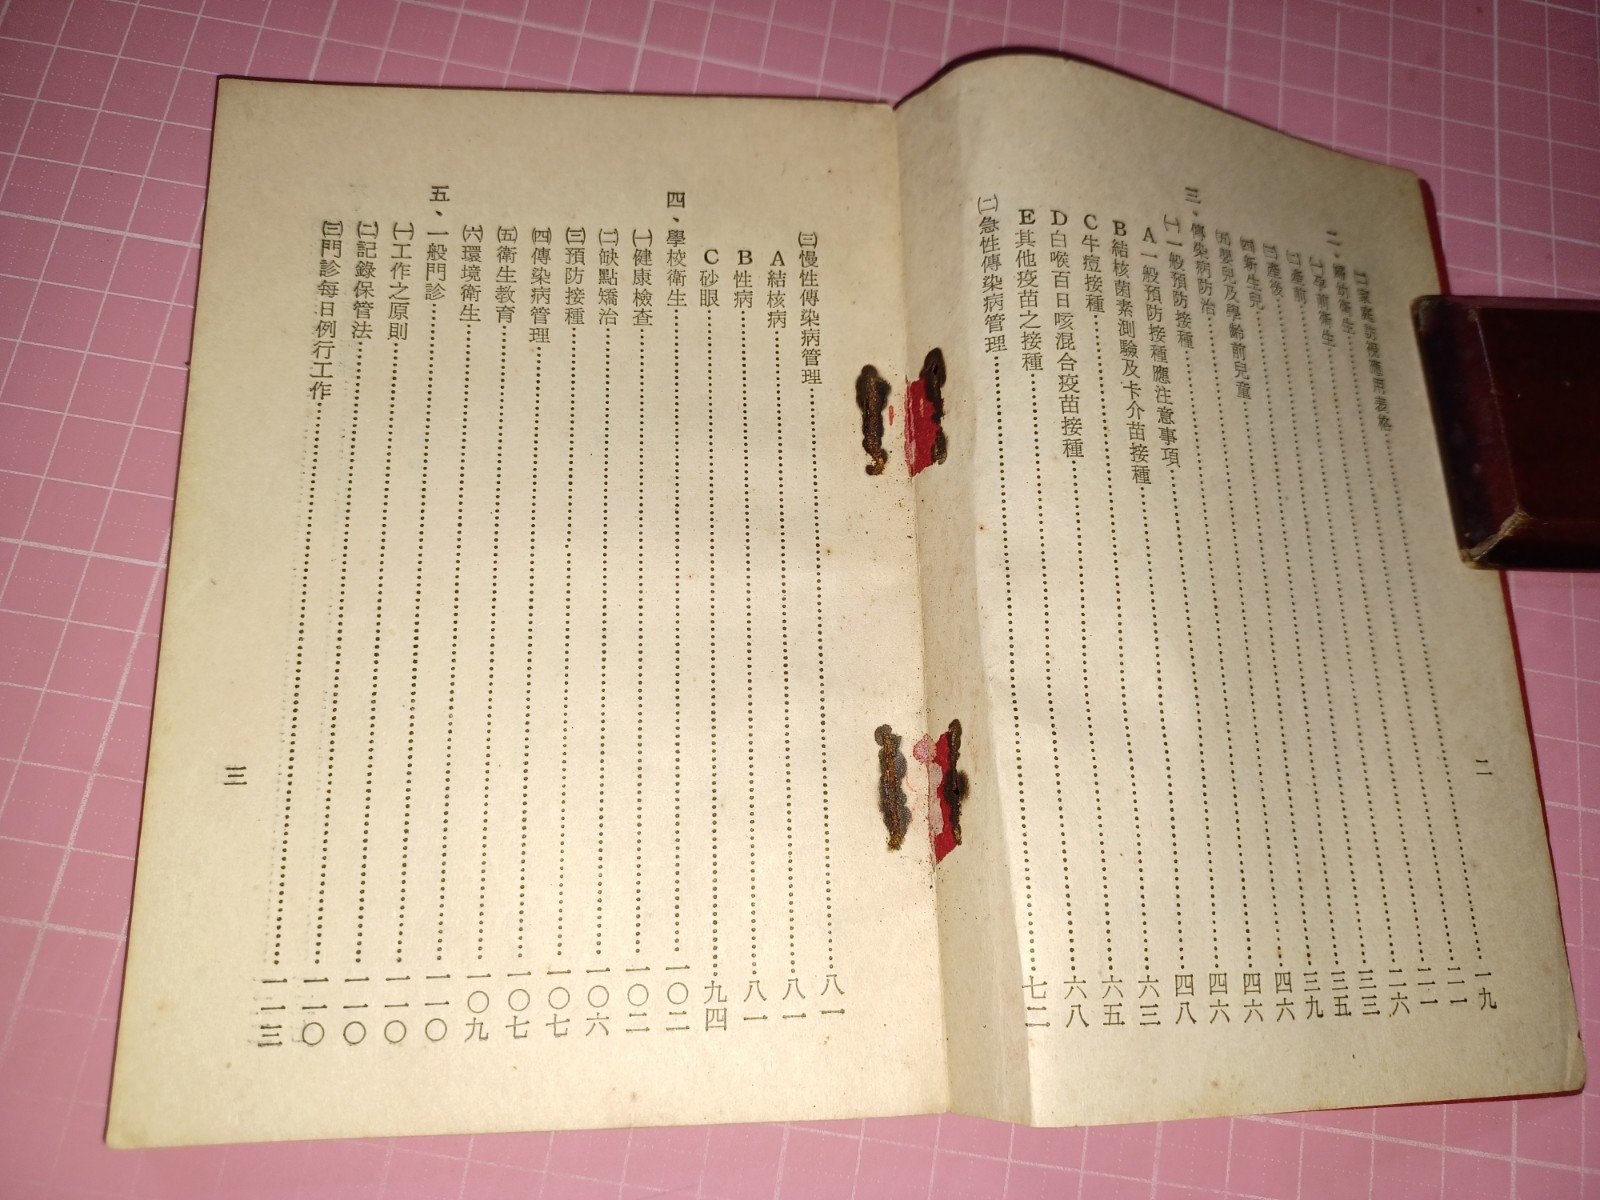 家庭訪視應用表格……一九
二、婦幼衛生……二一
㈠孕前衛生……二一
㈡產前……二六
㈢產後……三三
㈣新生兒……三五
㈤嬰兒及學齡前兒童……三九
三、傳染病防治……四六
㈠一般預防接種……四六
A一般預防接種應注意事項……四六
B結核菌素測驗及卡介苗接種……四八
C牛痘接種……六三
D白喉百日咳混合疫苗接種……六五
E其他疫苗之接種……六八
㈡急性傳染病管理……七二
二
㈢慢性傳染病管理……八一
A結核病……八一
B性病……八一
C砂眼……九四
四、學校衛生……一〇二
㈠健康檢查……一〇二
㈡缺點矯治……一〇六
㈢預防接種……一〇七
㈣傳染病管理……一〇七
㈤衛生教育……一〇九
㈥環境衛生……一一〇
五、一般門診……一一〇
㈠工作之原則……一一〇
㈡記錄保管法……一一〇
㈢門診每日例行工作……一一三
三